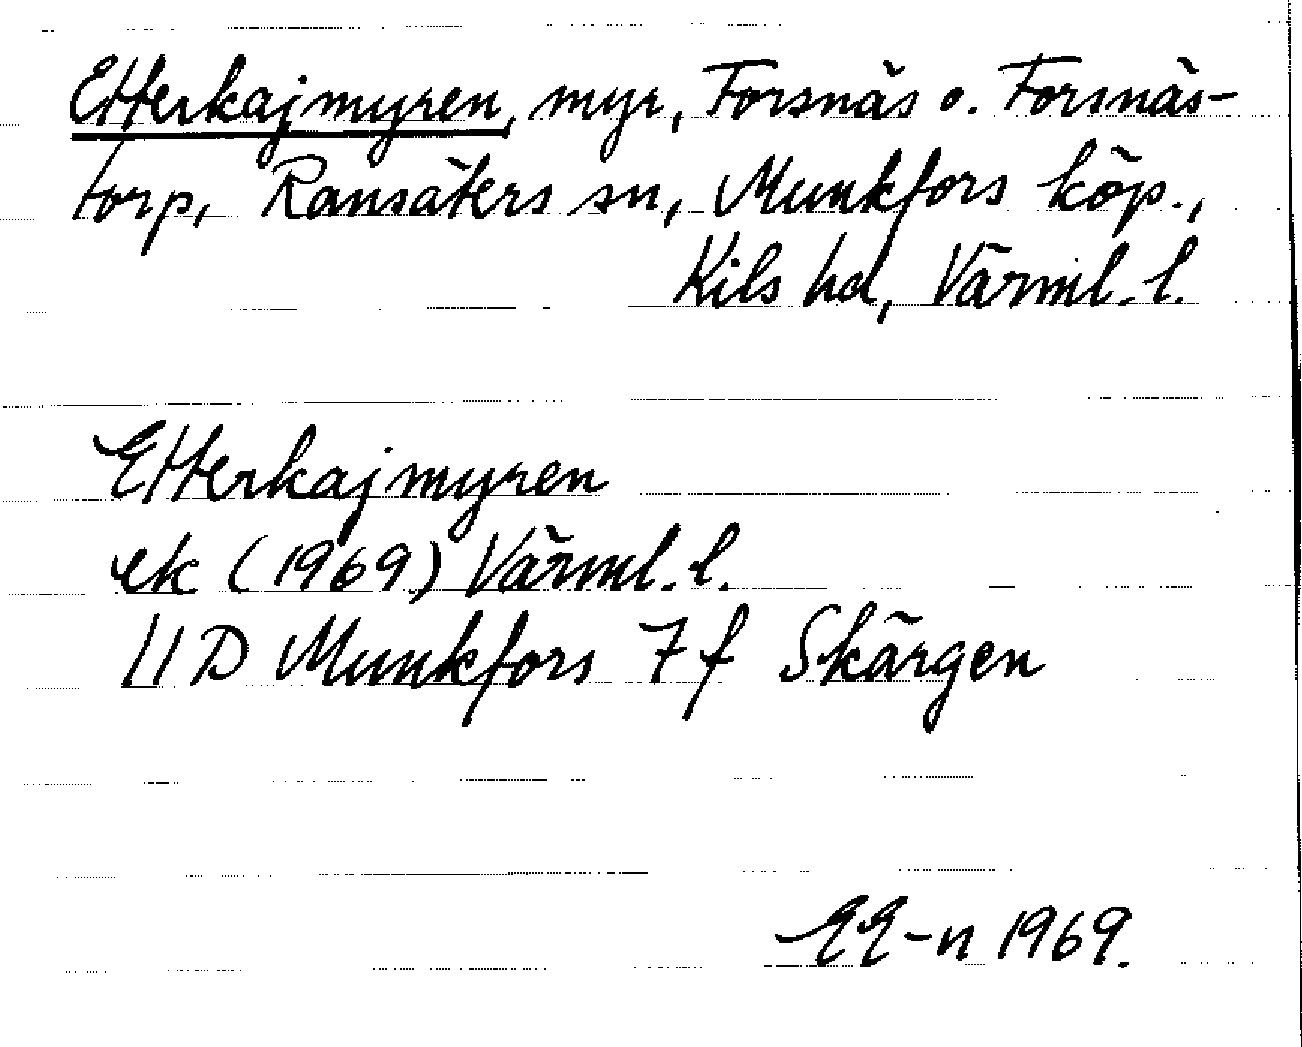 Etterkajmyren, myr, Forsnäs o. Forsnäs-
torp, Ransäters sn, Munkfors köp.,
Kils hd, Värml. l.
Etterkajmyren
ek (1969) Värml. l.
11D Munkfors 7f Skärgen
EE-n 1969.